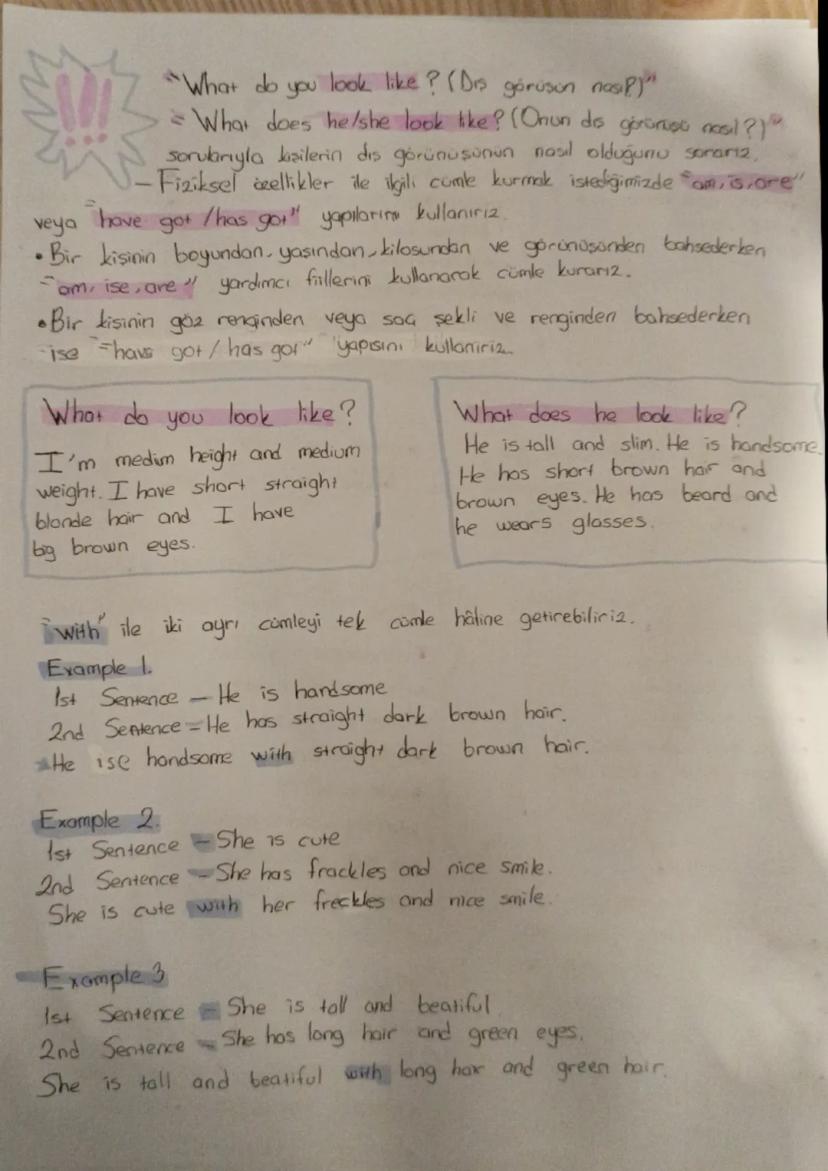 !!!
"What do you look like? (Dış görüşün nasıl?)"
= What does he/she look like? (Onun dış görünüşü nasıl?)"
sorularıyla kişilerin dış görünüşünün nasıl olduğunu sorarız.
- Fiziksel özellikler ile ilgili cümle kurmak istediğimizde "am, is, are"
veya "have got / has got" yapılarını kullanırız.
• Bir kişinin boyundan, yaşından, kilosundan ve görünüşünden bahsederken
"am, ise, are" yardımcı fiillerini kullanarak cümle kurarız.
• Bir kişinin göz renginden veya saç şekli ve renginden bahsederken
ise "have got / has got" yapısını kullanırız.
What do you look like?
I'm medium height and medium
weight. I have short straight
blonde hair and I have
big brown eyes.
What does he look like?
He is tall and slim. He is handsome.
He has short brown hair and
brown eyes. He has beard and
he wears glasses.
"with" ile iki ayrı cümleyi tek cümle hâline getirebiliriz.
Example 1.
1st Sentence - He is handsome
2nd Sentence = He has straight dark brown hair.
He ise handsome with straight dark brown hair.
Example 2.
1st Sentence - She is cute
2nd Sentence - She has frackles and nice smile.
She is cute with her freckles and nice smile.
Example 3
1st Sentence = She is tall and beatiful
2nd Sentence - She has long hair and green eyes.
She is tall and beatiful with long hair and green hair.